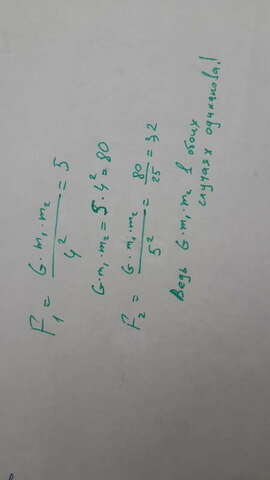 F₁ = G·m₁·m₂ / 4² = 5
G·m₁·m₂ = 5·4² = 80
F₂ = G·m₁·m₂ / 5² = 80 / 25 = 32
Ведь G·m₁·m₂ в обоих
случаях одинакова!